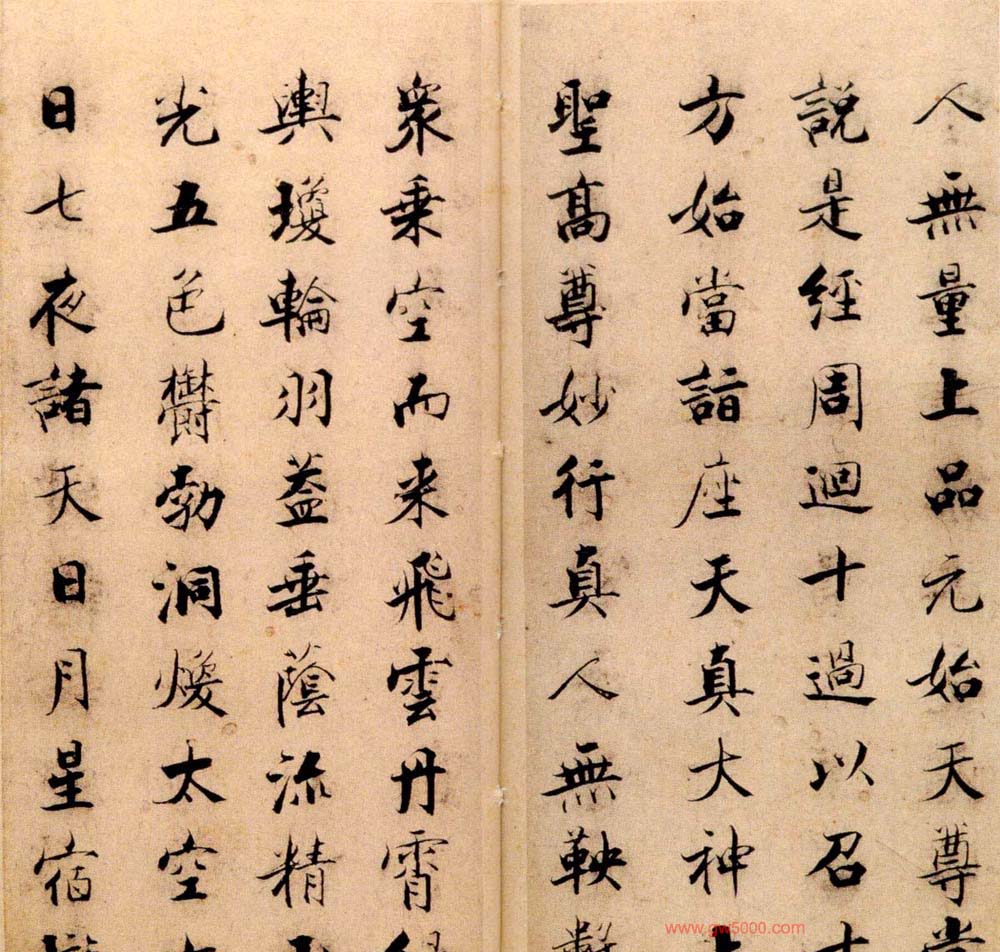 人無量上品元始天尊當
說是經周迴十過以召十
方始當詣座天真大神上
聖高尊妙行真人無鞅數
衆乗空而来飛雲丹霄緑
輿瓊輪羽葢垂蔭流精玉
光五色欝勃洞煥太空七
日七夜諸天日月星宿
www.gw5000.com